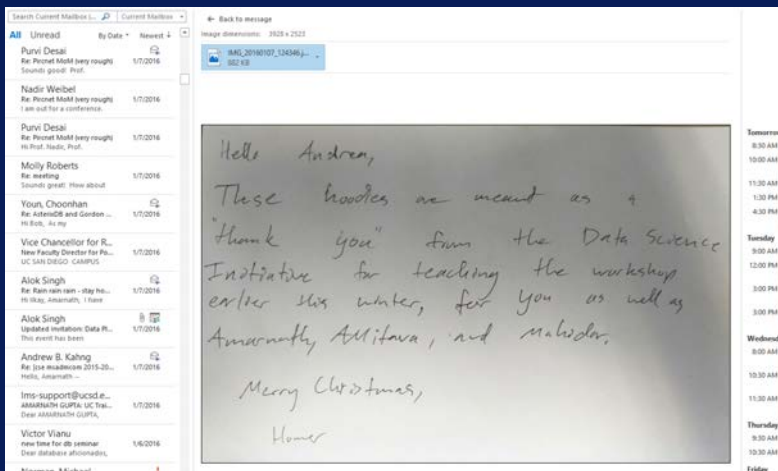 Search Current Mailbox (... Current Mailbox
All Unread By Date Newest ↓
Purvi Desai
Re: Pircnet MoM (very rough) 1/7/2016
Sounds good! Prof.
Nadir Weibel
Re: Pircnet MoM (very rough) 1/7/2016
I am out for a conference.
Purvi Desai
Re: Pircnet MoM (very rough) 1/7/2016
Hi Prof. Nadir, Prof.
Molly Roberts
Re: meeting 1/7/2016
Sounds great! How about
Youn, Choonhan
Re: AsterixDB and Gordon ... 1/7/2016
Hi Bob, As my
Vice Chancellor for R...
New Faculty Director for Po... 1/7/2016
UC SAN DIEGO CAMPUS
Alok Singh
Re: Rain rain rain - stay ho... 1/7/2016
Hi Ilkay, Amarnath, I have
Alok Singh
Updated invitation: Data Pl... 1/7/2016
This event has been
Andrew B. Kahng
Re: jsoe msadmicom 2015-20... 1/7/2016
Hello, Amarnath --
lms-support@ucsd.e...
AMARNATH GUPTA: UC Trai... 1/7/2016
Dear AMARNATH GUPTA,
Victor Vianu
new time for db seminar 1/6/2016
Dear database aficionados,
Norman, Michael
← Back to message
Image dimensions: 3928 x 2523
IMG_20160107_124346.j...
682 KB
Hello Andrea,
These hoodies are meant as a
"thank you" from the Data Science
Initiative for teaching the workshop
earlier this winter, for you as well as
Amarnath, Amitava, and Mahidar.
Merry Christmas,
Homer
Tomorrow
8:30 AM
10:00 AM
11:30 AM
1:30 PM
4:30 PM
Tuesday
9:00 AM
12:00 PM
3:00 PM
3:00 PM
Wednesd
8:00 AM
10:30 AM
11:30 AM
Thursday
9:30 AM
10:30 AM
Friday